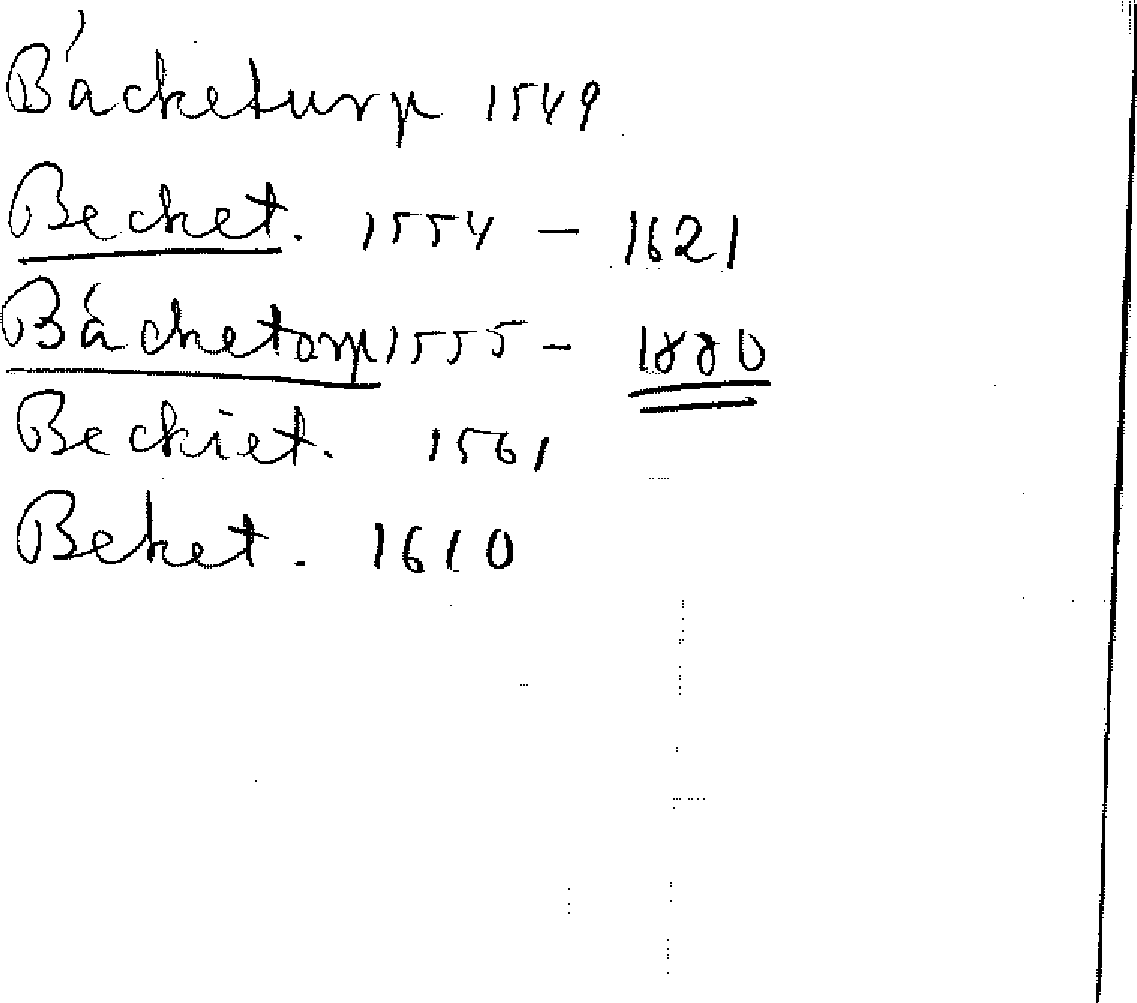 Bácketurp 1549
Becket. 1554 – 1621
Bácketorp 1555 – 1880
Beckiet. 1561
Beket. 1610